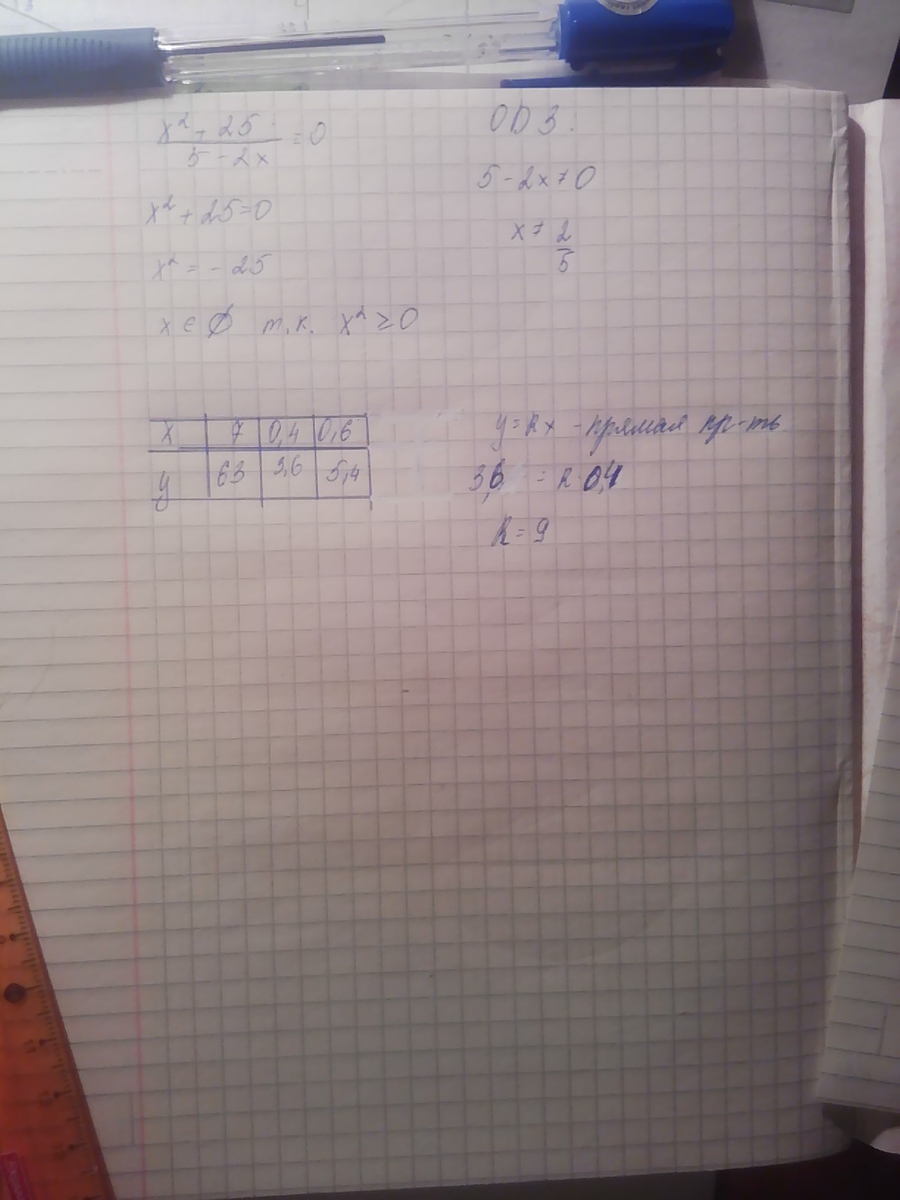 x² + 25 / 5 - 2x = 0
x² + 25 = 0
x² = - 25
x ∈ ∅ т.к. x² ≥ 0
ОДЗ:
5 - 2x ≠ 0
x ≠ 2/5
x 7 0,4 0,6
y 63 3,6 5,4
y = kx - прямая пр-ть
3,6 = k · 0,4
k = 9